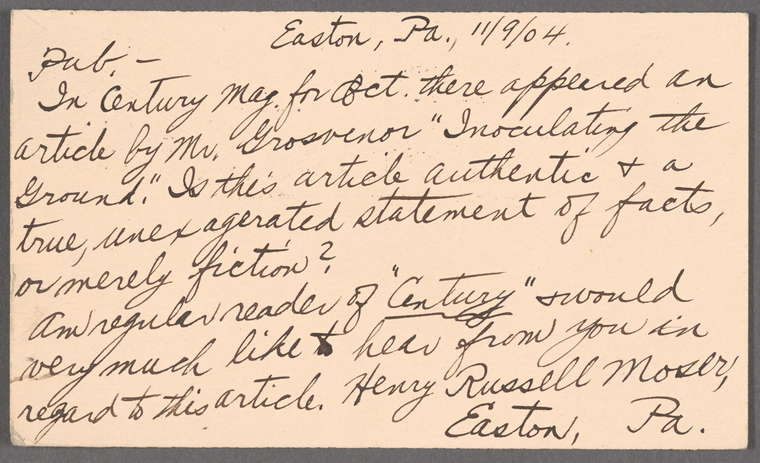 Easton, Pa., 11/9/04.
Pub. -
In Century Mag. for Oct. there appeared an
article by Mr. Grosvenor "Inoculating the
Ground." Is this article authentic & a
true, unexagerated statement of facts,
or merely fiction?
Am regular reader of "Century" & would
very much like to hear from you in
regard to this article. Henry Russell Moser,
Easton, Pa.